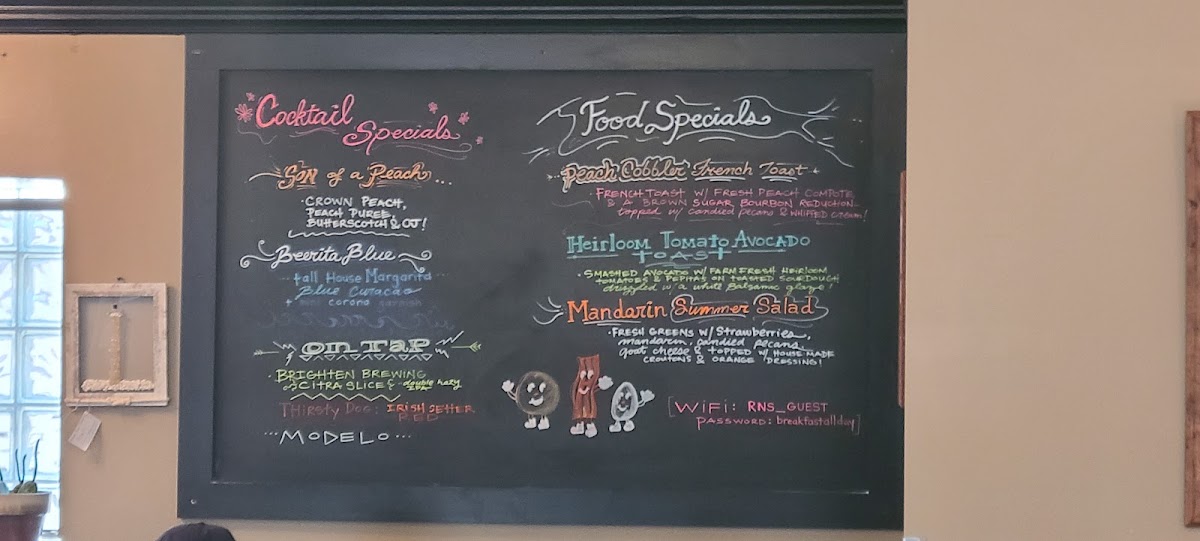 Cocktail
Specials
Son of a Peach...
· CROWN PEACH,
PEACH PUREE,
BUTTERSCOTCH & OJ!
Beerita Blue
tall House Margarita
Blue Curacao
+ mini corona garnish
ON TAP
· BRIGHTEN BREWING
CITRA SLICE - double hazy
IPA
THIRSTY DOG: IRISH SETTER
RED
...MODELO...
Food Specials
Peach Cobbler French Toast
· FRENCH TOAST W/ FRESH PEACH COMPOTE
& A BROWN SUGAR BOURBON REDUCTION
topped w/ candied pecans & WHIPPED CREAM!
Heirloom Tomato Avocado
TOAST
· SMASHED AVOCADO W/ FARM FRESH HEIRLOOM
TOMATOES & PEPITAS ON TOASTED SOURDOUGH
drizzled w/ a white Balsamic glaze!
Mandarin Summer Salad
· FRESH GREENS W/ Strawberries,
mandarin, candied pecans,
goat cheese & TOPPED W/ HOUSE MADE
CROUTONS & ORANGE DRESSING!
[WiFi: RNS_GUEST
PASSWORD: breakfastallday]